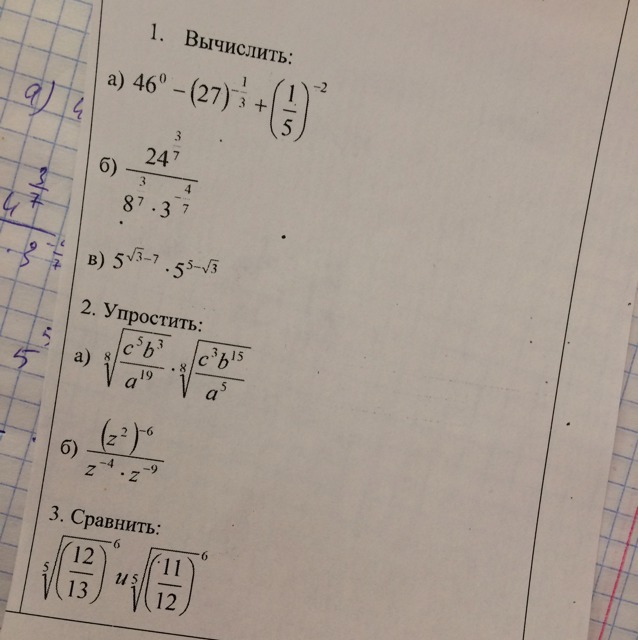 1. Вычислить:
а) 46⁰ − (27)^(−1/3) + (1/5)^(−2)
б) 24^(3/7) / (8^(3/7) · 3^(−4/7))
в) 5^(√3−7) · 5^(5−√3)
2. Упростить:
а) ⁸√(c⁵b³/a¹⁹) · ⁸√(c³b¹⁵/a⁵)
б) (z²)⁻⁶ / (z⁻⁴ · z⁻⁹)
3. Сравнить:
⁵√(12/13)⁶ и ⁵√(11/12)⁶